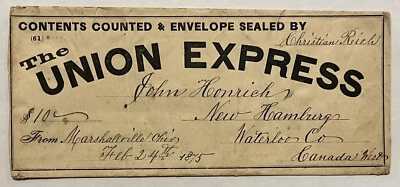 CONTENTS COUNTED & ENVELOPE SEALED BY
(61) Christian Rich
The
UNION EXPRESS
John Honrich
$10 New Hamburg
From Marshallville Ohio Waterloo Co
Feb 24th 1875 Canada West